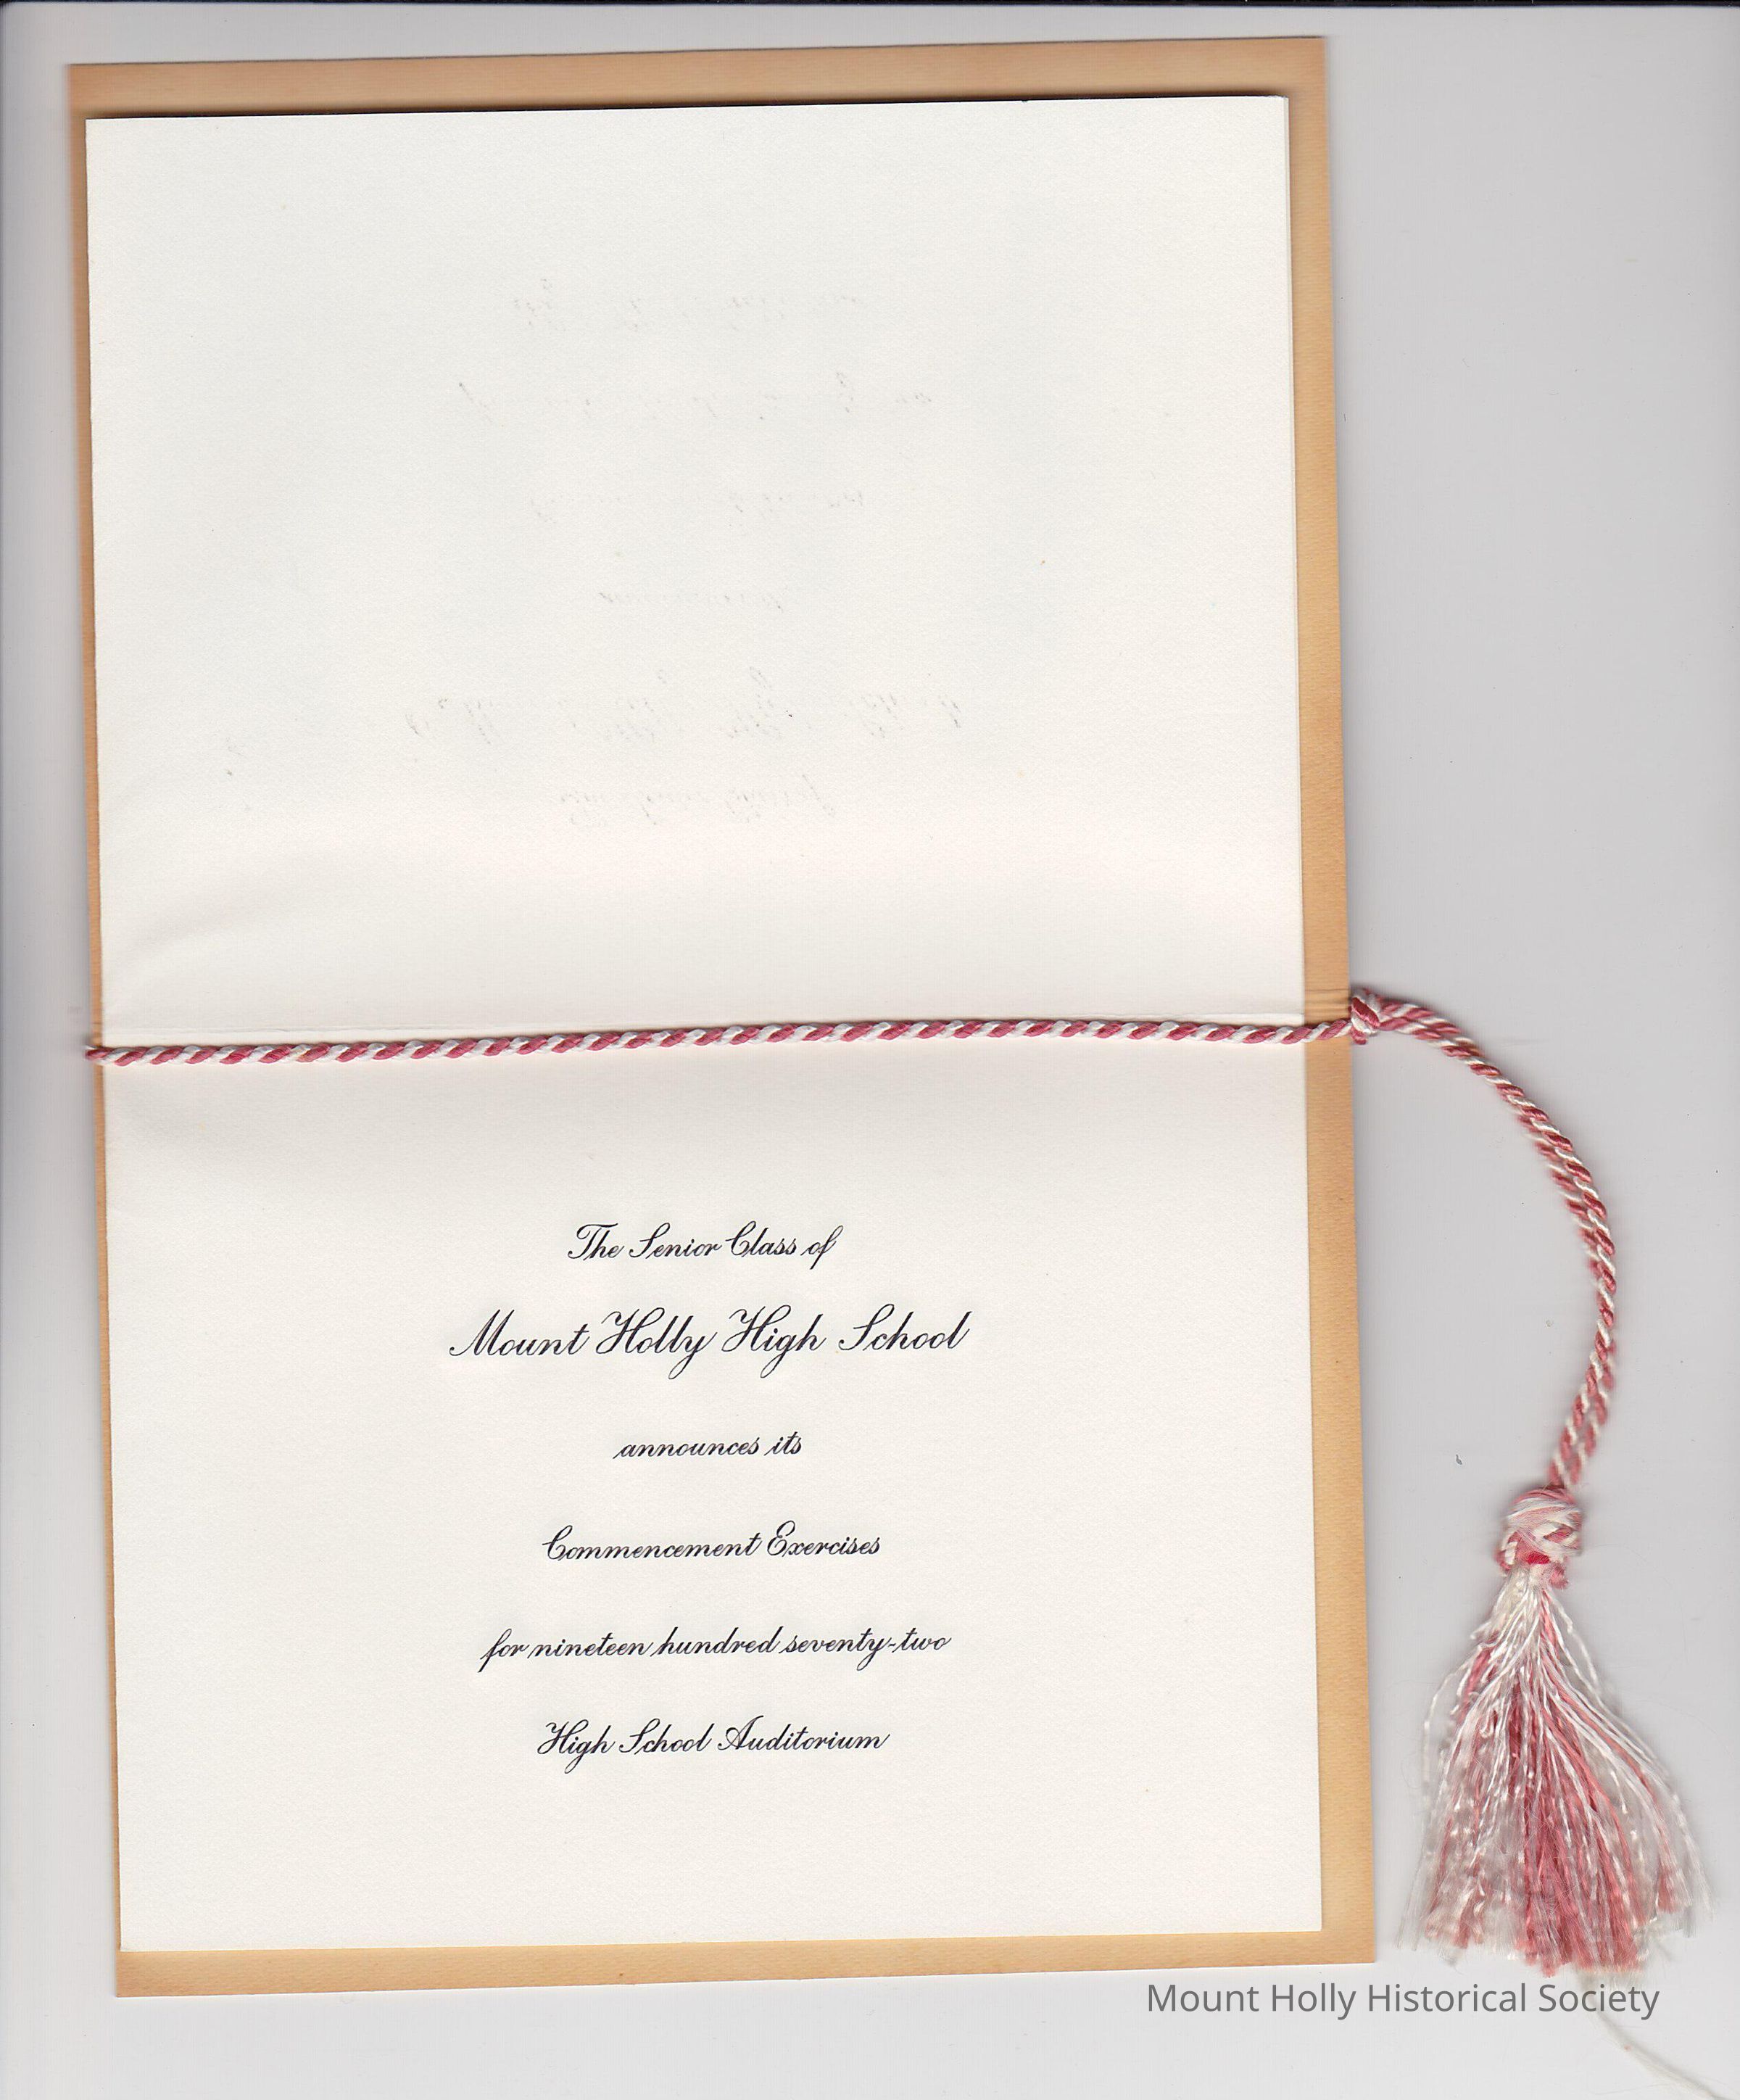 The Senior Class of
Mount Holly High School
announces its
Commencement Exercises
for nineteen hundred seventy-two
High School Auditorium
Mount Holly Historical Society